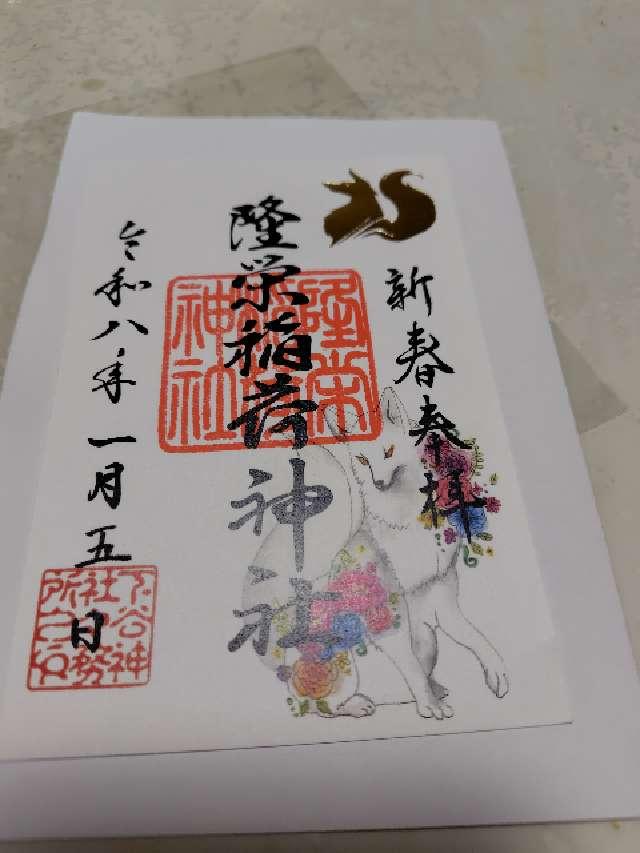 新春奉拝
隆栄稲荷神社
令和八年一月五日
隆栄
稲荷
神社
下谷神
社社務
所之印